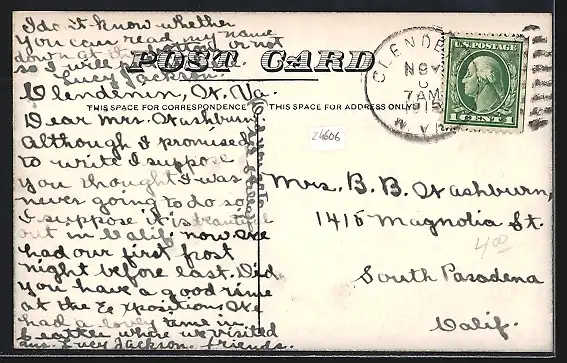 I do it know whether
you can read my name
down at the bottom or not
so I will
Lucy Jackson.
POST CARD
Clendenin, W. Va.
THIS SPACE FOR CORRESPONDENCE
THIS SPACE FOR ADDRESS ONLY
Dear Mrs. Washburn
Although I promised
to write I suppose
you thought I was
never going to do so
I suppose it is beautiful
out in Calif now. We
had our first frost
night before last. Did
you have a good time
at the Exposition. We
had a lovely time in
where we visited
Lucy Jackson. friends.
CLENDE
NOV
7 AM
W. V
U.S. POSTAGE
1 CENT 1
24606
Mrs. B. B. Washburn,
1415 Magnolia St.
400
South Pasadena
Calif.